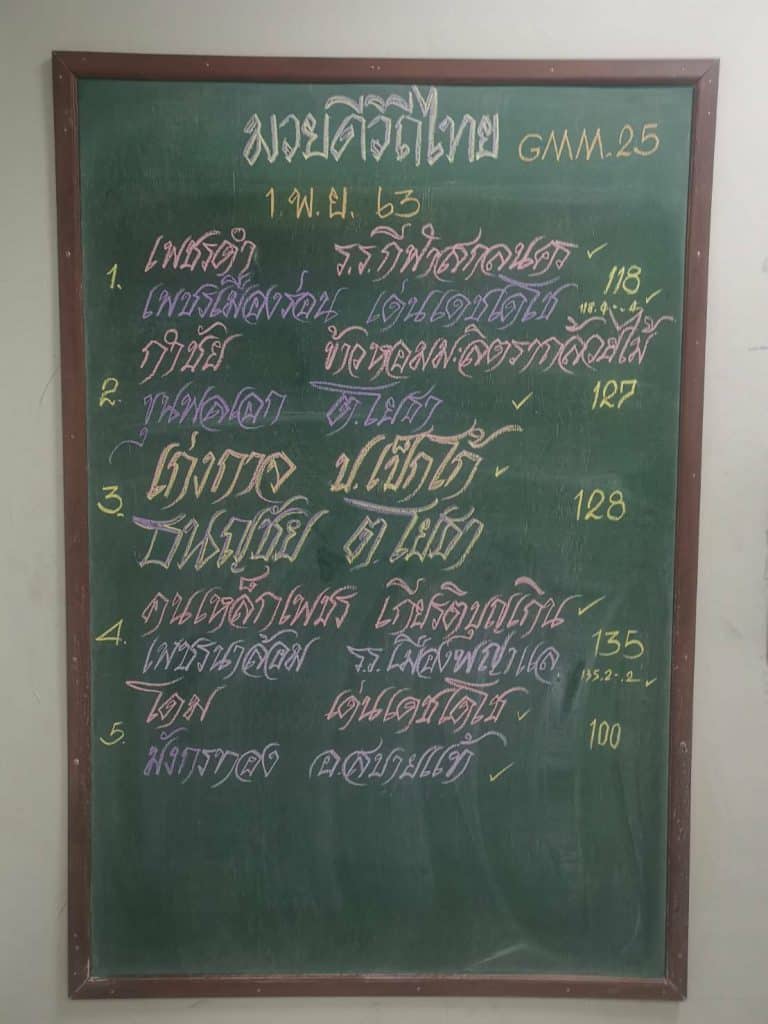 มวยดีวิถีไทย GMM.25
1 พ.ย. 63
1. เพชรดำ ร.ร.กีฬาสกลนคร ✓ 118
เพชรเมืองร่อน เด่นเดชเดโช 118.4-.4 ✓
กำชัย ข้าวหอมมะลิตรากล้วยไม้
2. ขุนพลเอก ต.โยธา ✓ 127
3. เก่งกาจ ป.เช็กโก้ ✓ 128
ธนญชัย ต.โยธา
4. คนเหล็กเพชร เกียรติบุญเกิน ✓ 135
เพชรนาล้อม ร.ร.เมืองพญาแล 135.2-.2 ✓
5. โดม เด่นเดชเดโช ✓ 100
มังกรทอง อ.สบายแท้ ✓